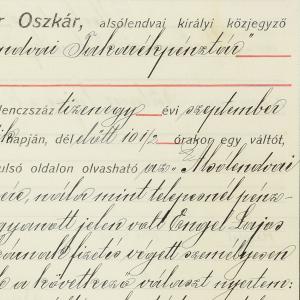 r Oszkár, alsólendvai királyi közjegyző
ndvai Takarékpénztár"
lenczszáz tizenegy évi szeptember
napján, dél előtt 10 1/2 órakor egy váltót,
ulsó oldalon olvasható az „Alsólendvai
nála mint telepesnél pénz-
gyanott jelen volt Engel Lajos
fizetés végett személyesen
a következő választ nyertem: